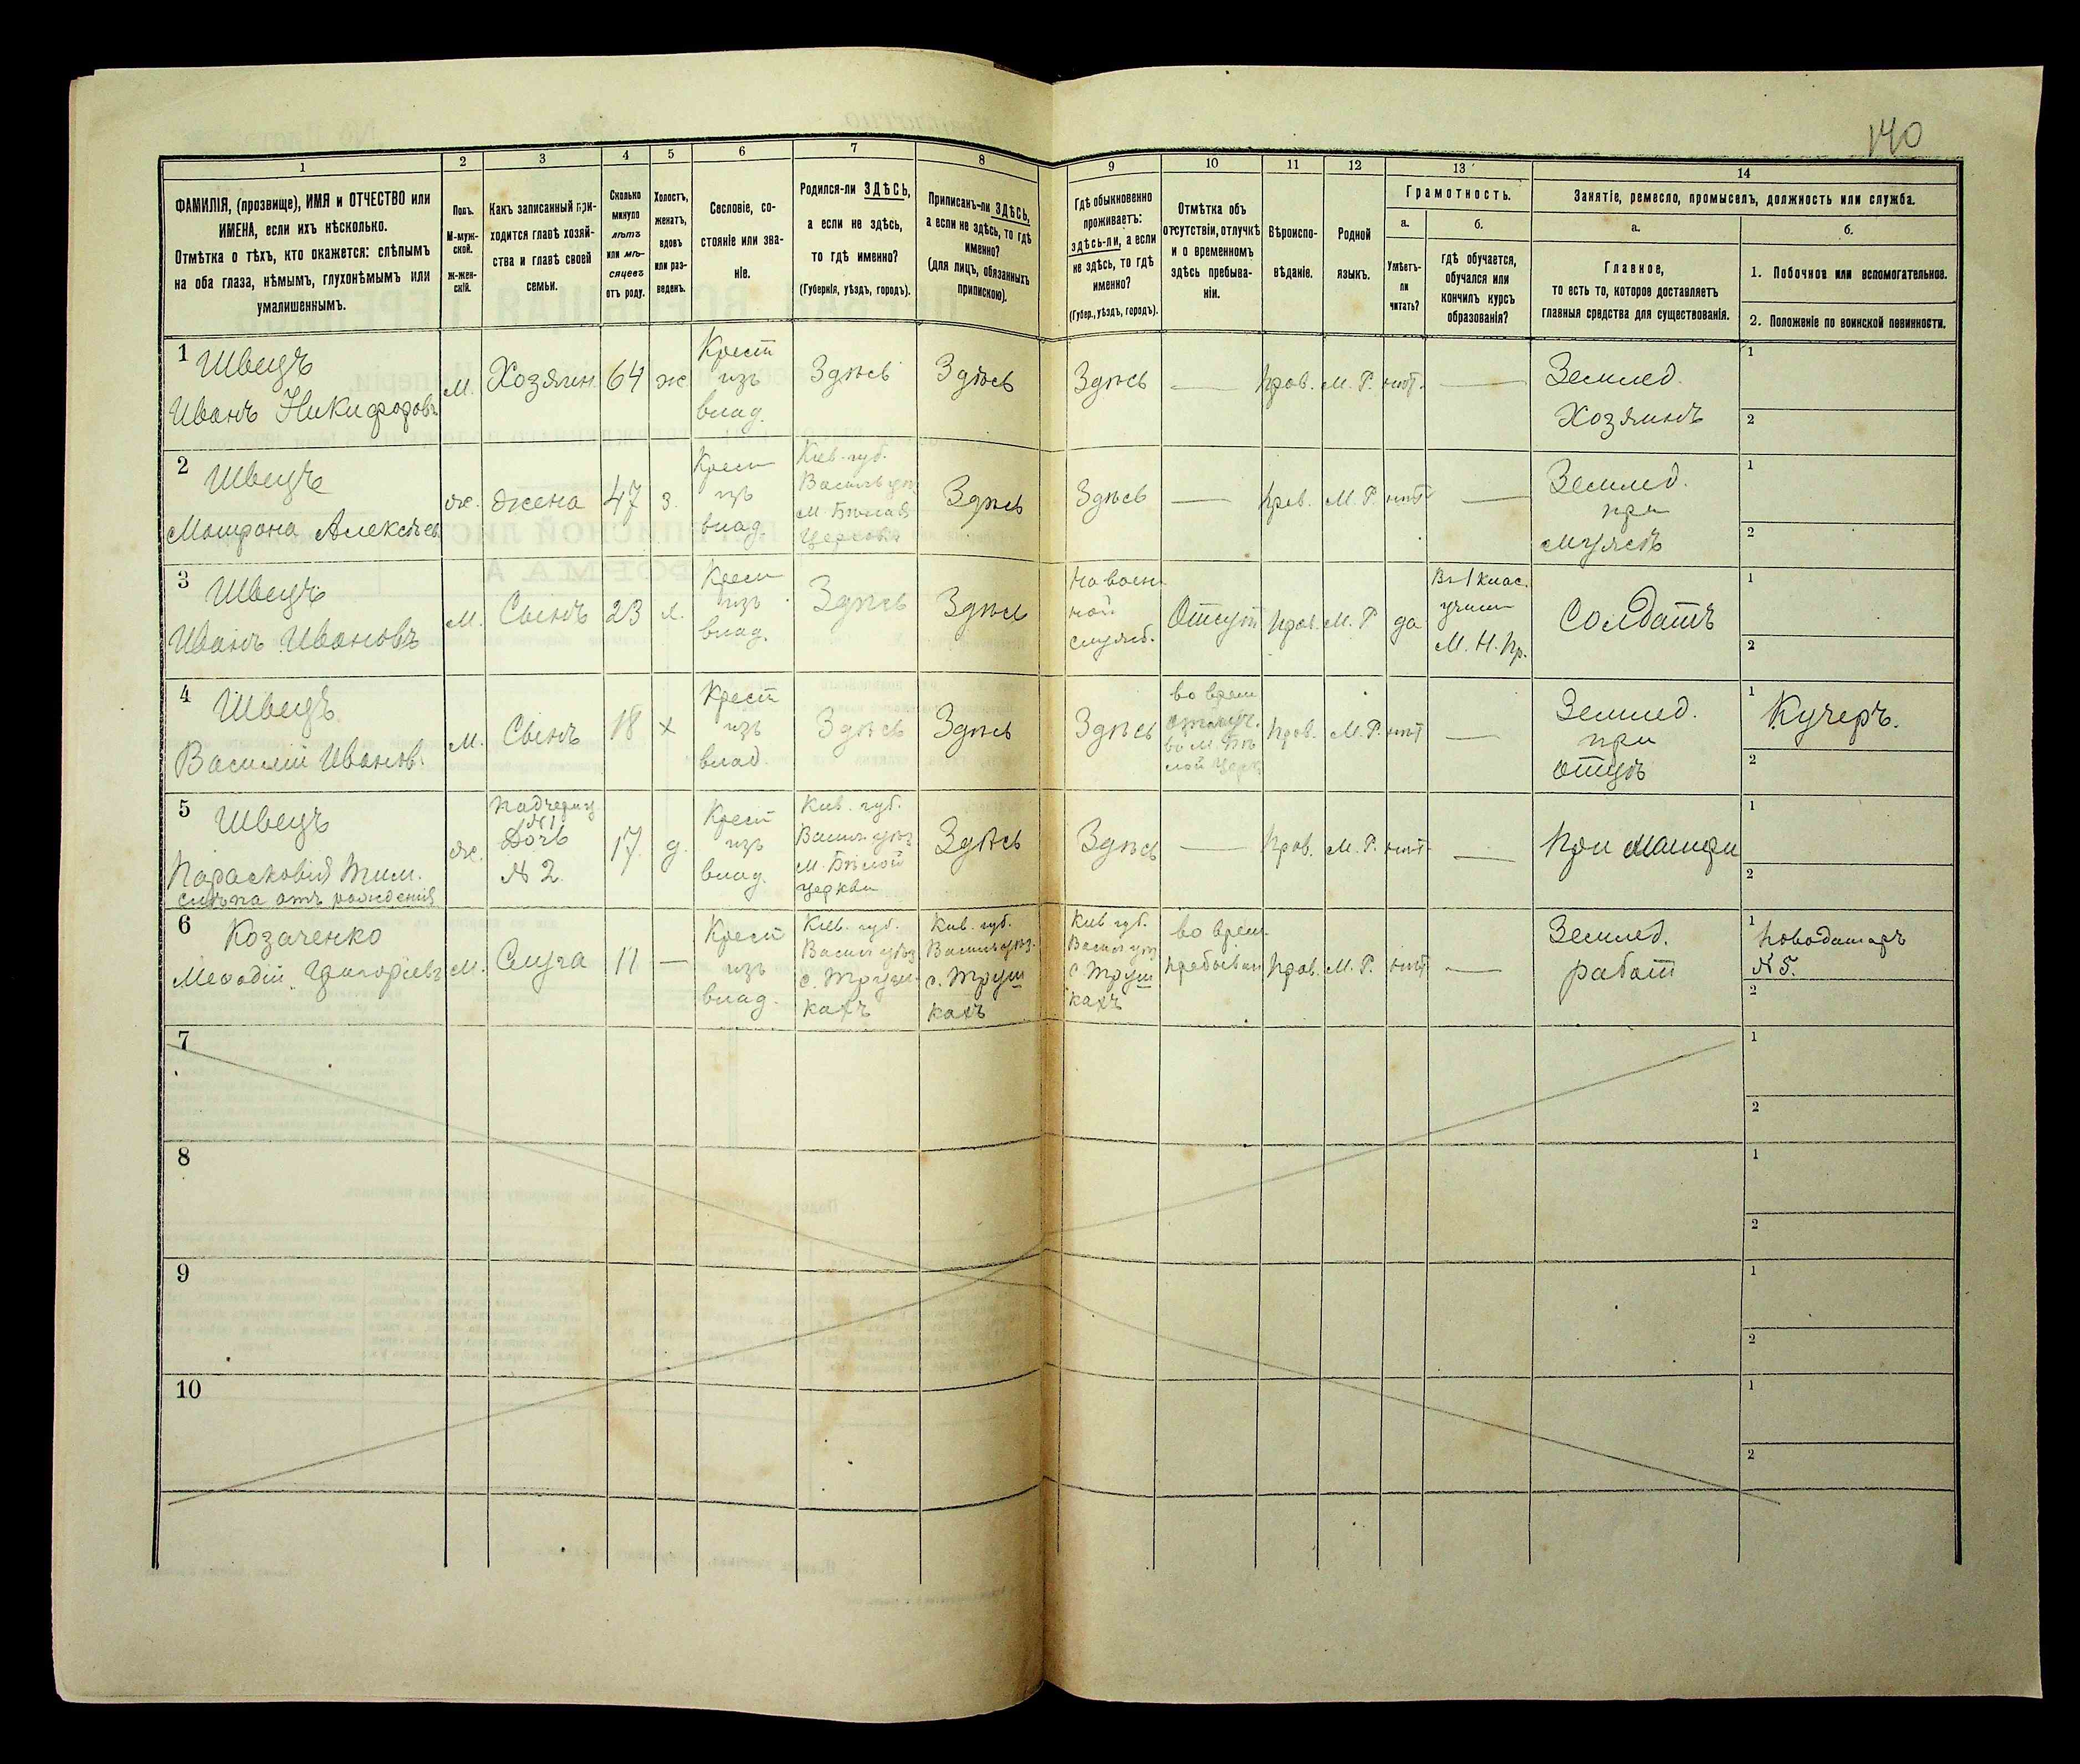 140
1
2
3
4
5
6
7
8
9
10
11
12
13
14
ФАМИЛІЯ, (прозвище), ИМЯ и ОТЧЕСТВО или
ИМЕНА, если ихъ нѣсколько.
Отмѣтка о тѣхъ, кто окажется: слѣпымъ
на оба глаза, нѣмымъ, глухонѣмымъ или
умалишеннымъ.
Полъ.
М-муж-
ской.
Ж-жен-
скій.
Какъ записанный при-
ходится главѣ хозяй-
ства и главѣ своей
семьи.
Сколько
минуло
лѣтъ
или мѣ-
сяцевъ
отъ роду.
Холостъ,
женатъ,
вдовъ
или раз-
веденъ.
Сословіе, со-
стояніе или зва-
ніе.
Родился-ли ЗДѢСЬ,
а если не здѣсь,
то гдѣ именно?
(Губернія, уѣздъ, городъ).
Приписанъ-ли ЗДѢСЬ,
а если не здѣсь, то гдѣ
именно?
(для лицъ, обязанныхъ
припискою).
Гдѣ обыкновенно
проживаетъ:
здѣсь-ли, а если
не здѣсь, то гдѣ
именно?
(Губер., уѣздъ, городъ).
Отмѣтка объ
отсутствіи, отлучкѣ
и о временномъ
здѣсь пребыва-
ніи.
Вѣроиспо-
вѣданіе.
Родной
языкъ.
Грамотность.
а.
Умѣетъ-
ли
читать?
б.
гдѣ обучается,
обучался или
кончилъ курсъ
образованія?
Занятіе, ремесло, промыселъ, должность или служба.
а.
Главное,
то есть то, которое доставляетъ
главныя средства для существованія.
б.
1. Побочное или вспомогательное.
2. Положеніе по воинской повинности.
1
Швецъ
Иванъ Никифоровъ
М.
Хозяин
64
ж
Крест
из
влад.
Здѣсь
Здѣсь
Здѣсь
—
Прав.
М. Р.
нѣт.
—
Землед.
Хозяинъ
1
2
2
Швецъ
Матрона Алексѣев
Ж.
Жена
47
з.
Крест
из
влад.
Кіев. губ.
Васильк уѣз
М. Бѣлая
Церковь
Здѣсь
Здѣсь
—
Прав.
М. Р.
нѣт
—
Землед.
при
мужѣ
1
2
3
Швецъ
Иванъ Ивановъ
М.
Сынъ
23
Крест
из
влад.
Здѣсь
Здѣсь
На воен
ной
служб.
Отсут
Прав.
М. Р
да
Въ 1 клас.
учил
М. Н. Пр.
Солдатъ
1
2
4
Швецъ
Василій Иванов.
М.
Сынъ
18
х
Крест
изъ
влад
Здѣсь
Здѣсь
Здѣсь
во врем
отлуч.
во М. Бѣ
лой Церк
Прав.
М. Р.
нѣт
—
Землед.
при
отцѣ
1
Кучеръ.
2
5
Швецъ
Парасковія Тим.
слѣпа отъ рожденія
Ж.
Падчериц
№1
Дочь
№ 2.
17
д.
Крест
из
влад.
Кіев. губ.
Васильк уѣз
М. Бѣлой
Церкви
Здѣсь
Здѣсь
—
Прав.
М. Р.
нѣт
—
При матери
1
2
6
Козаченко
Меѳодій Григорьевъ
М.
Слуга
11
—
Крест
из
влад.
Кіев. губ.
Васильк уѣз
с. Труш-
кахъ
Кіев. губ.
Васильк уѣз.
с. Труш
кахъ
Кіев губ.
Васильк уѣз
с. Труш
кахъ
во врем.
пребыван
Прав.
М. Р.
нѣт
—
Землед.
работ
1
Поводатарь
№ 5.
2
7
1
2
8
1
2
9
1
2
10
1
2